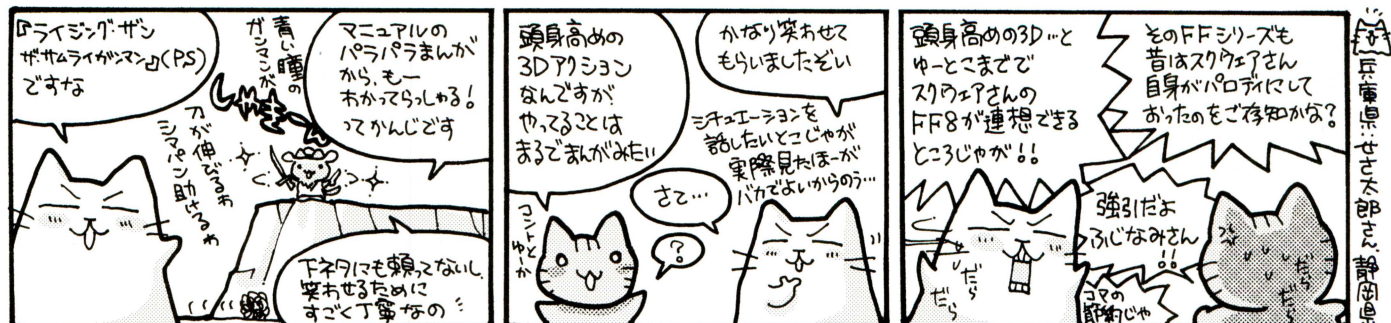 『ライジング・ザン
ザ・サムライガンマン』(PS)
ですな
青い瞳の
ガンマンが
サムラーイ
マニュアルの
パラパラまんが
から、もー
わかってらっしゃる!
ってかんじです
刀が伸びるわ
シマパン助けるわ
下ネタにも頼ってないし、
笑わせるために
すごく丁寧なの
頭身高めの
3Dアクション
なんですが、
やってることは
まるでまんがみたい
コントと
ゆーか
かなり笑わせて
もらいましたぞい
シチュエーションを
話したいとこじゃが
実際見たほーが
バカでよいからのう…
さて…
?
頭身高めの3D…と
ゆーとこまでで
スクウェアさんの
FF8が連想できる
ところじゃが!!
そのFFシリーズも
昔はスクウェアさん
自身がパロディにして
おったのをご存知かな?
強引だよ
ふじなみさん
!!
だら
だら
コマの
節約じゃ
だら
だら
兵庫県・せさ太郎さん、静岡県